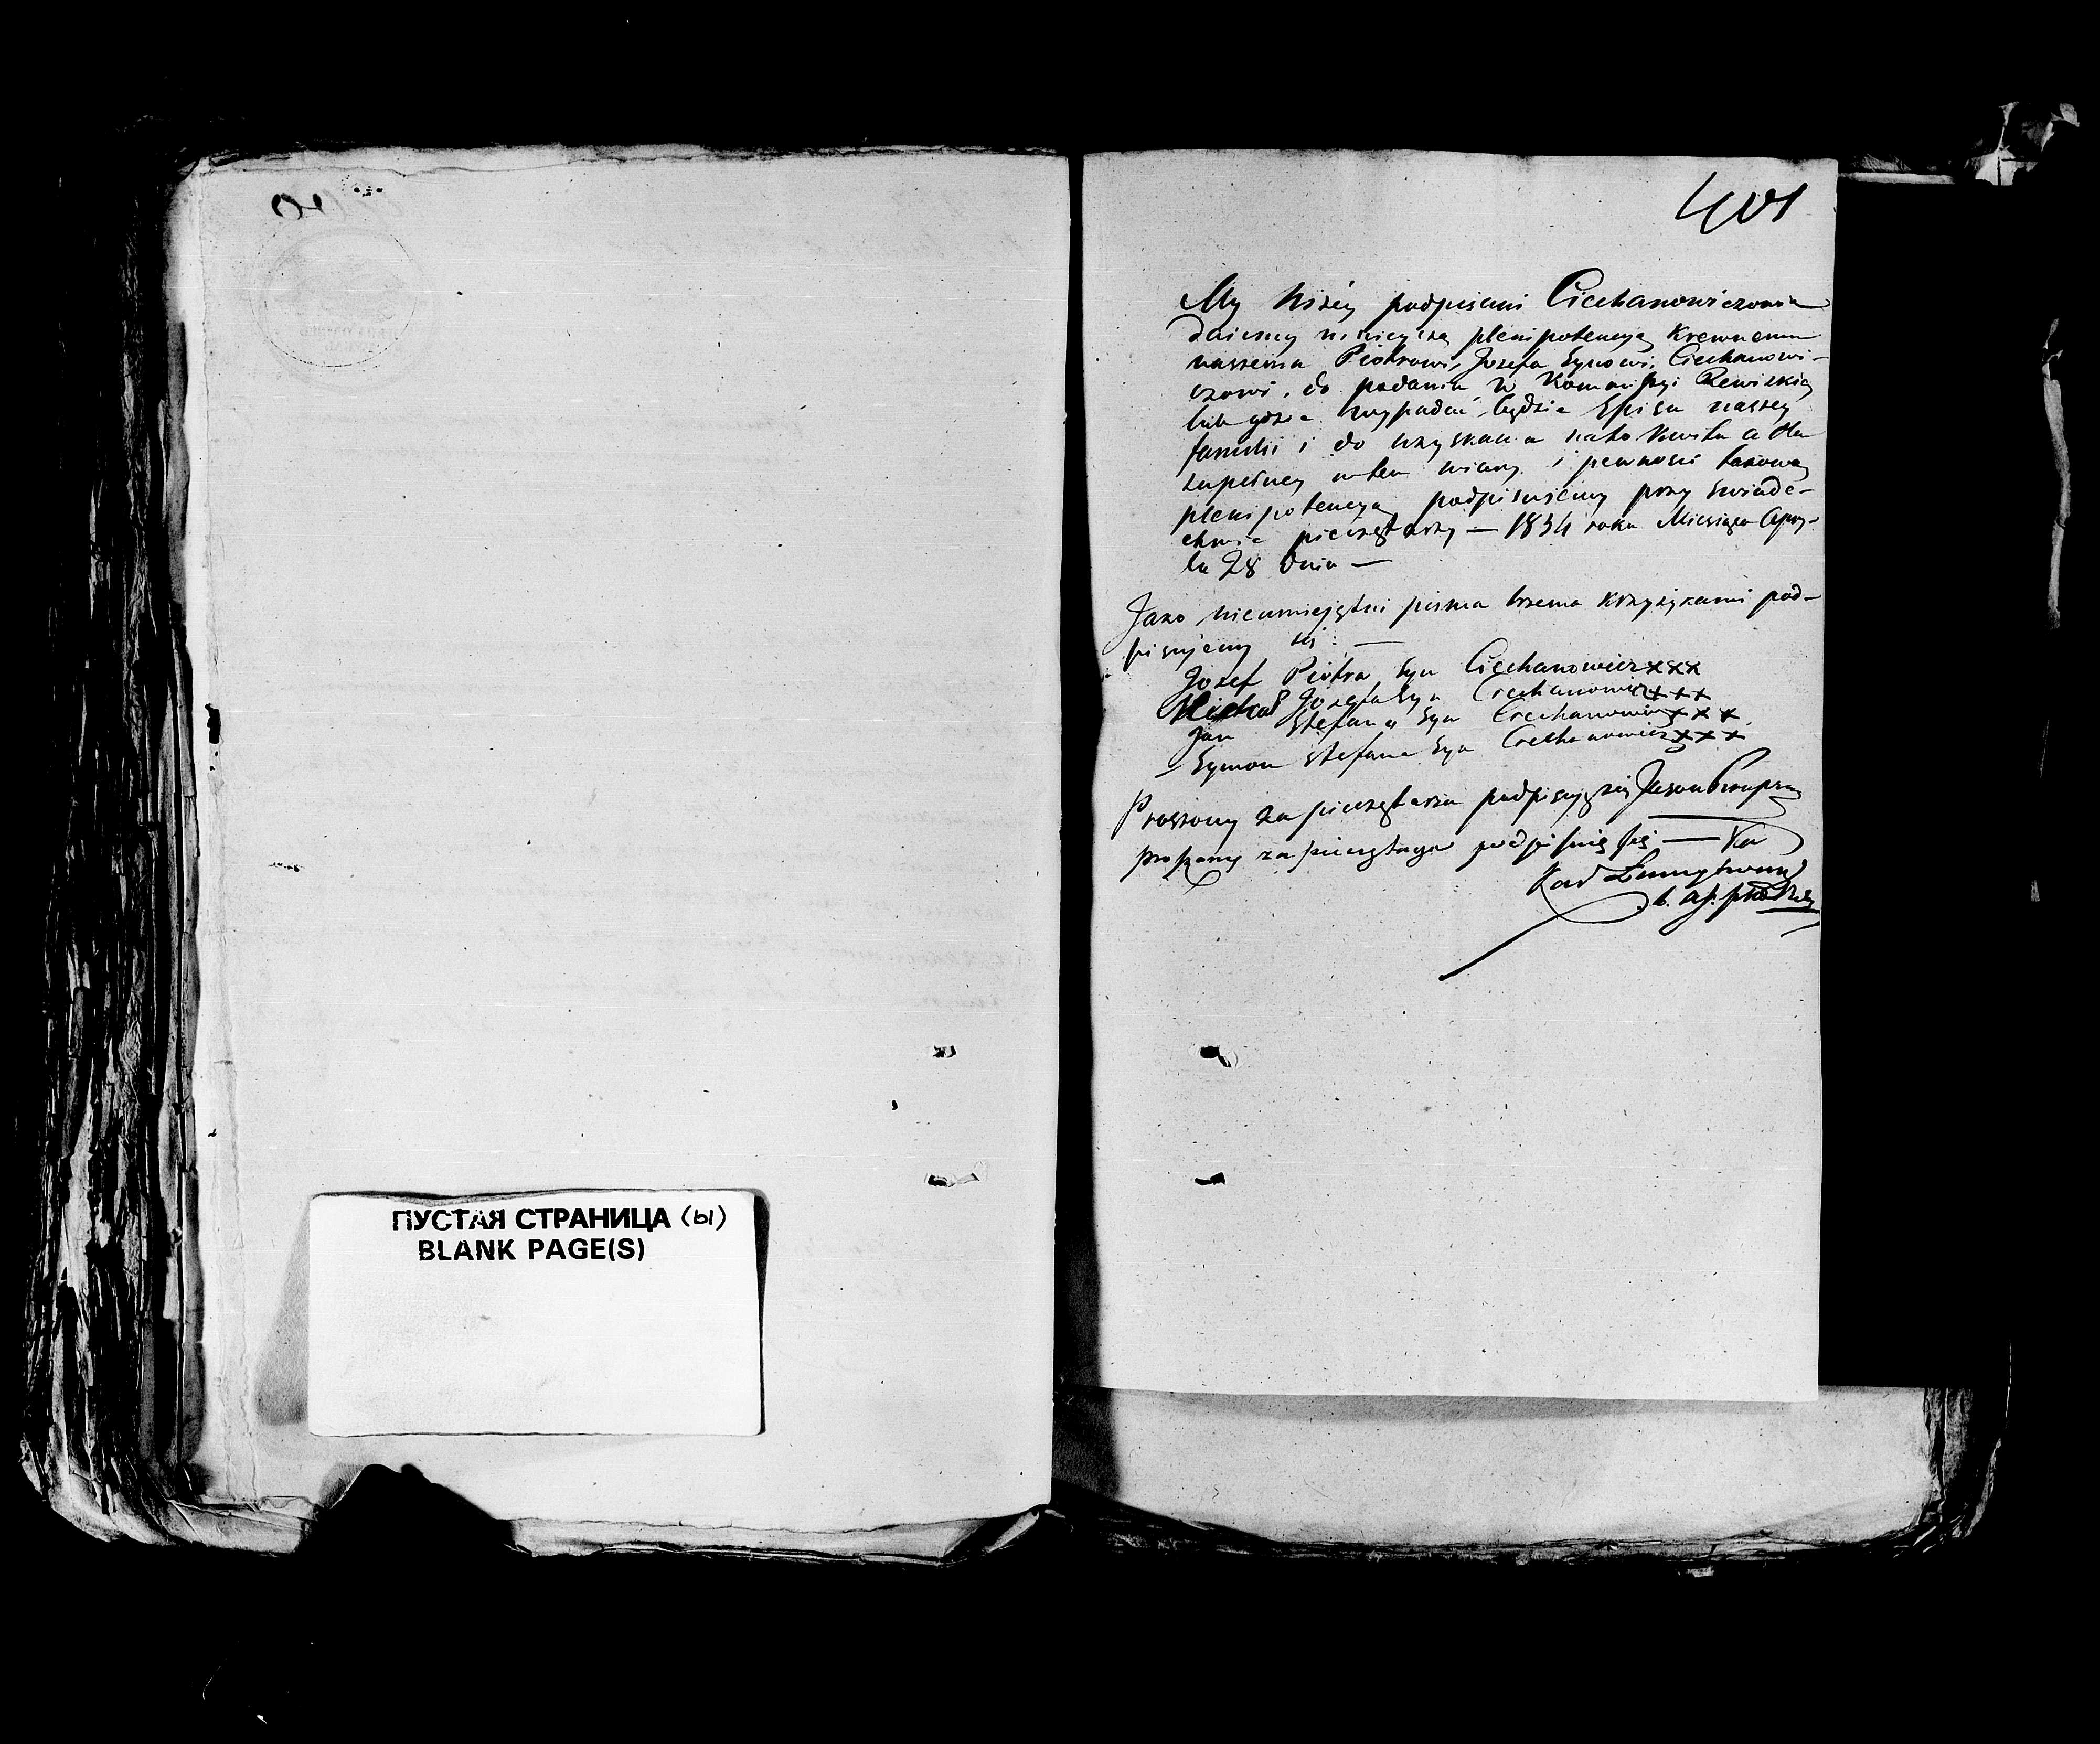 401
My niżéy podpisani Ciechanowiczowie
daiemy ninieyszą plenipotencyą krewnemu
naszemu Piotrowi, Jozefa Synowi, Ciechanowi-
czowi, do podania w Kommissyi Rewizkiey
lub gdzie wypadać będzie Spisu naszey
familii i do uzyskania na to kwitu a dla
zupełney w tem wiary i pewności takową
plenipotencyą podpisujemy przy świade-
ctwie pieczętarzy — 1834 roku Miesiąca Apry-
la 28 dnia —
Jako nieumiejętni pisma trzema krzyżykami pod-
pisujemy się: —
Jozef Piotra Syn Ciechanowicz xxx
Michał Jozefa Syn Ciechanowicz xxx
Jan Stefana Syn Ciechanowicz xxx
Symon Stefana Syn Ciechanowicz xxx
Proszony za pieczętarza podpisuję się
proszony za pieczętarza podpisuię się —
ПУСТАЯ СТРАНИЦА (Ы)
BLANK PAGE(S)